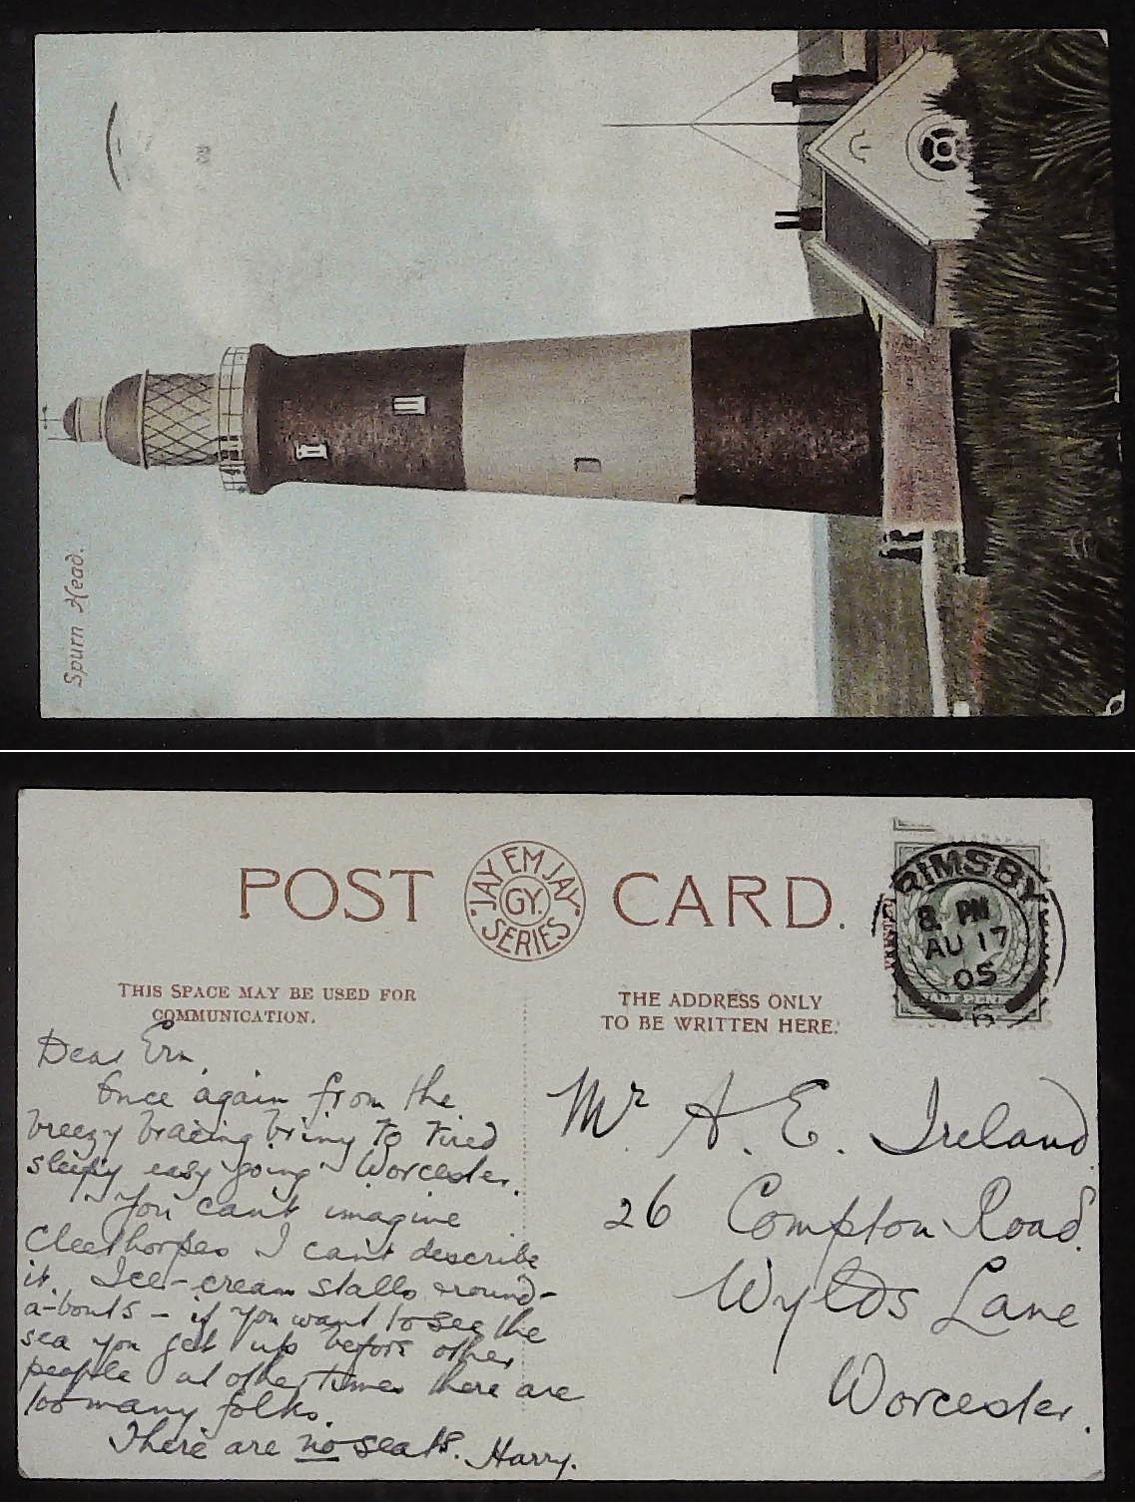 Spurn Head.
POST CARD.
JAY EM JAY
GY.
SERIES
THIS SPACE MAY BE USED FOR
COMMUNICATION.
THE ADDRESS ONLY
TO BE WRITTEN HERE.
RIMSBY
8 PM
AU 17
05
Dear Ern,
Once again from the
breezy bracing briny to tired
sleepy easy going Worcester.
You can't imagine
Cleethorpes I can't describe
it. Ice-cream stalls round-
a-bouts - if you want to see the
sea you get up before other
people at other times there are
too many folks.
There are no seats. Harry.
Mr A. E. Ireland
26 Compton Road.
Wylds Lane
Worcester.